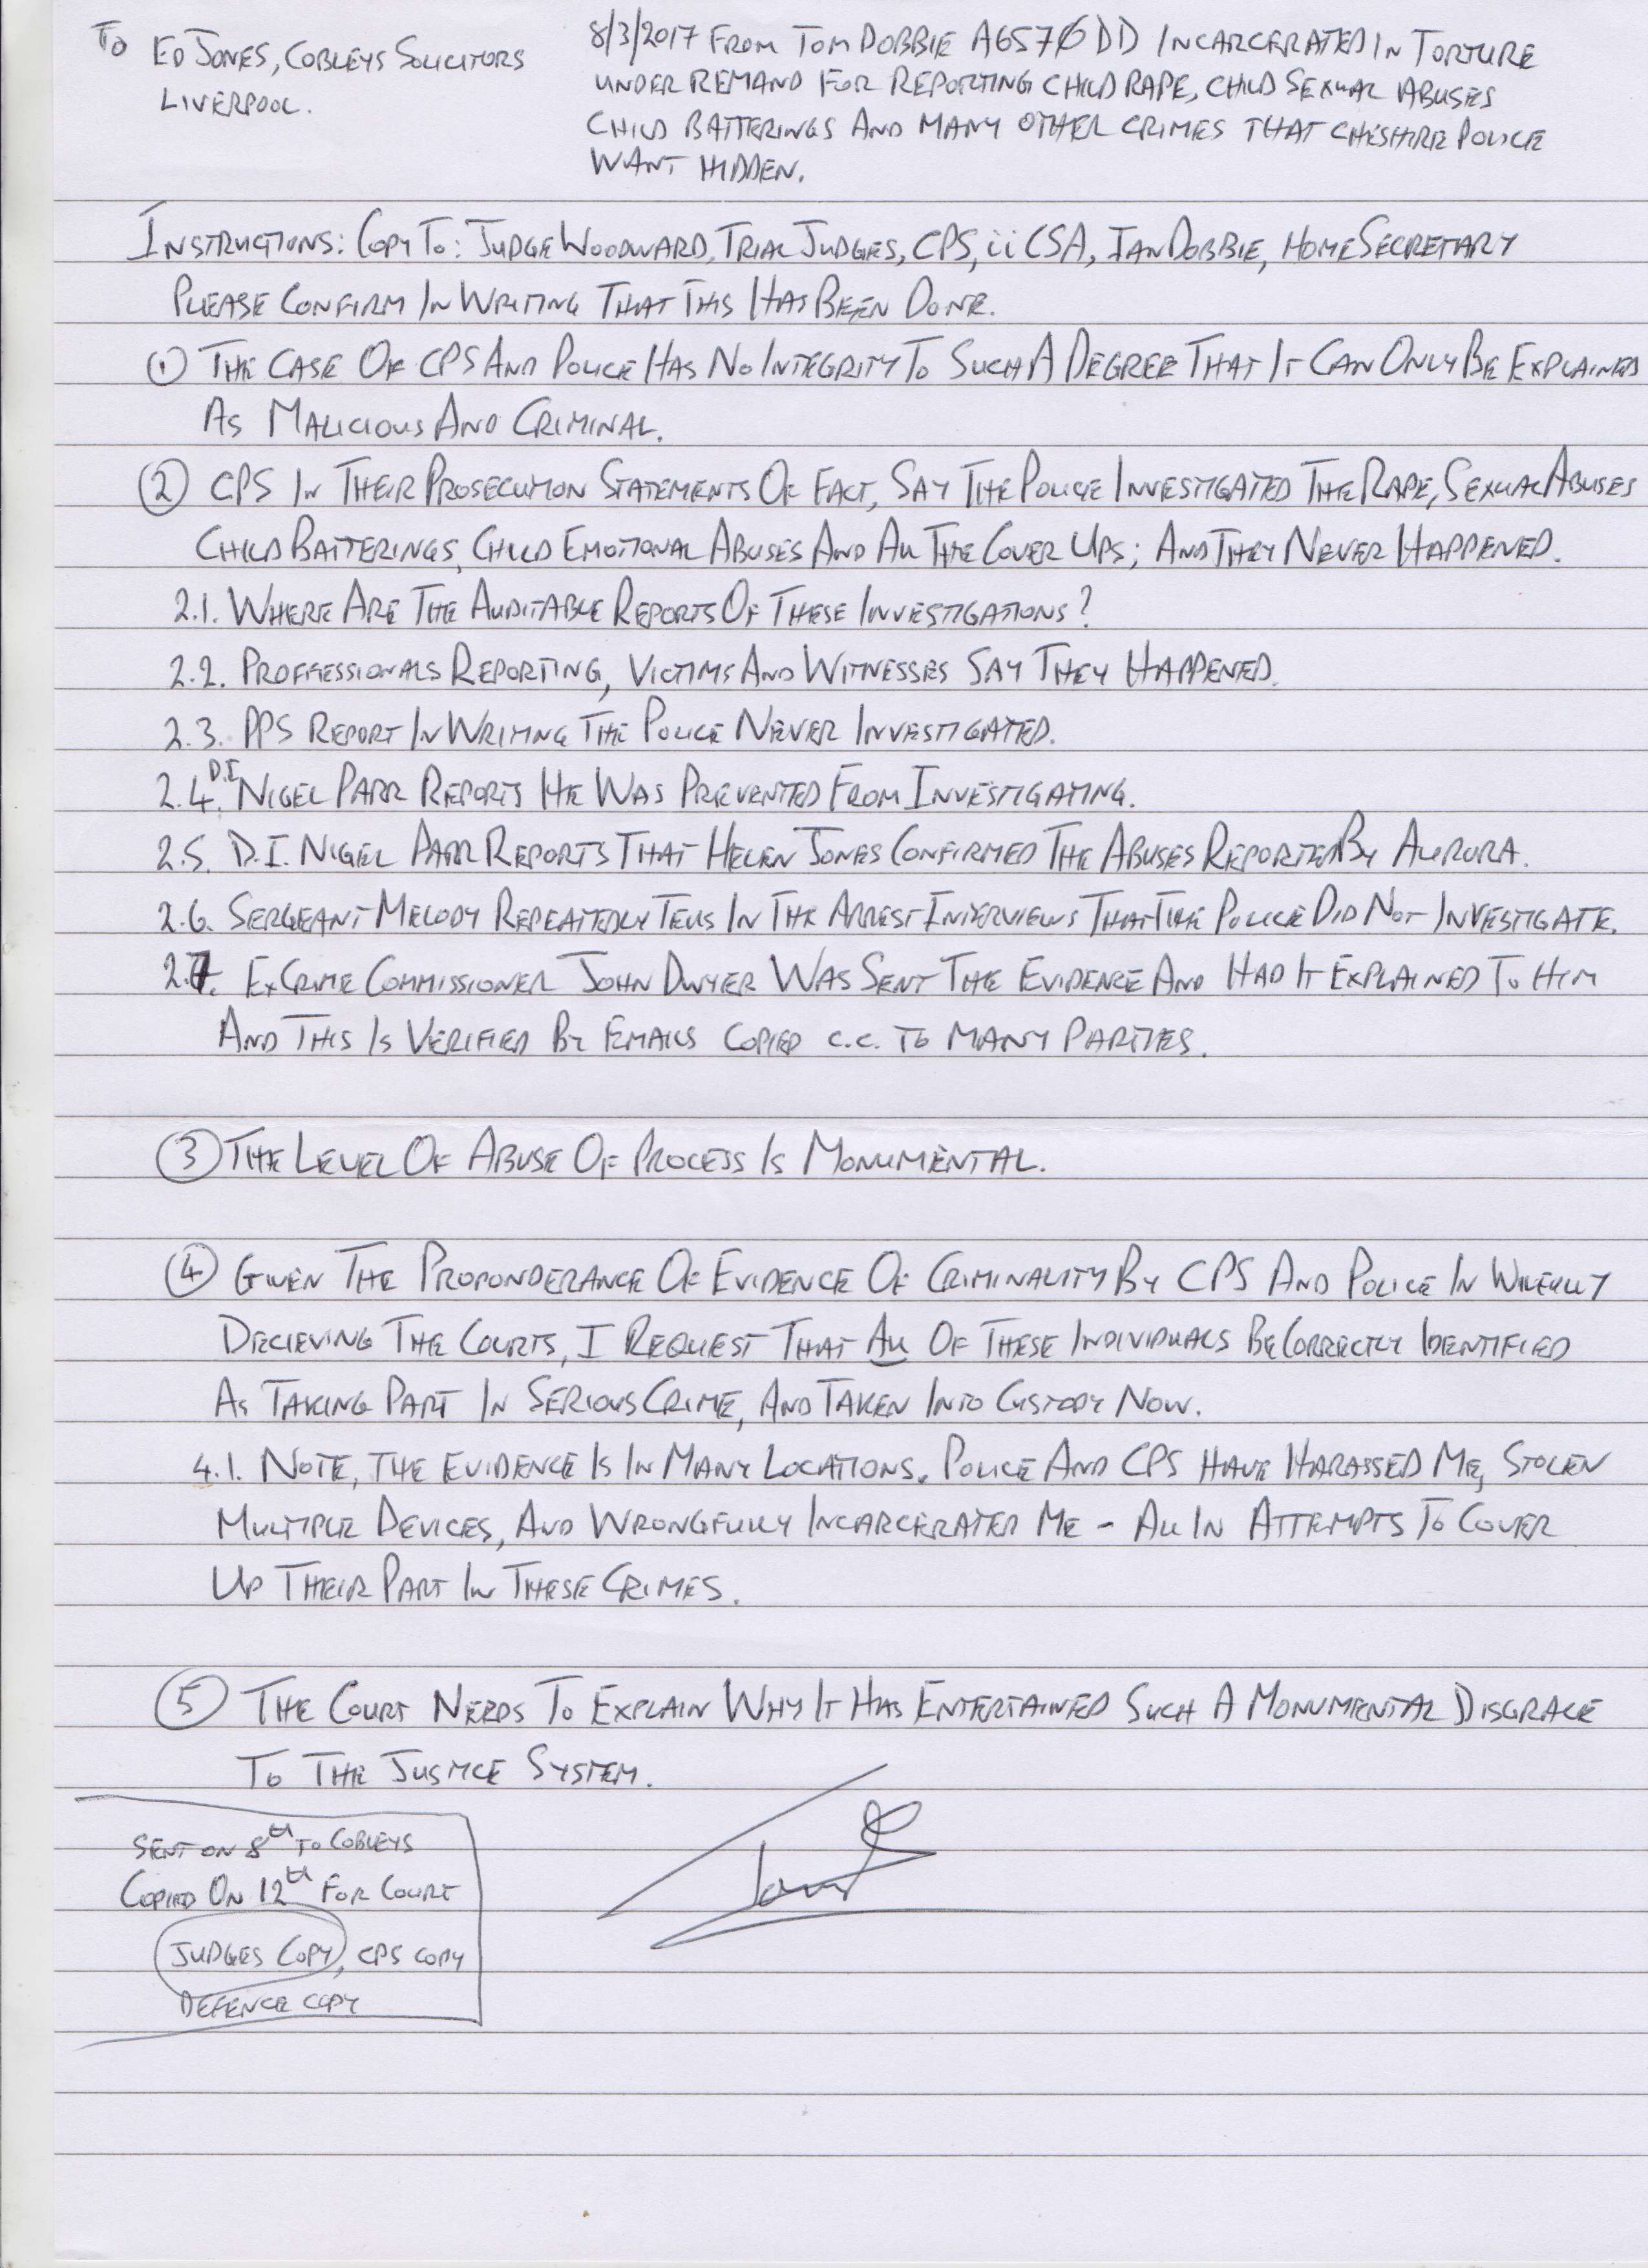 To Ed Jones, Cobleys Solicitors
Liverpool.
8/3/2017 From Tom Dobbie A6570DD Incarcerated In Torture
Under Remand For Reporting Child Rape, Child Sexual Abuses
Child Batterings And Many Other Crimes That Cheshire Police
Want Hidden.
Instructions: Copy To: Judge Woodward, Trial Judges, CPS, iiCSA, Ian Dobbie, Home Secretary
Please Confirm In Writing That This Has Been Done.
① The Case Of CPS And Police Has No Integrity To Such A Degree That It Can Only Be Explained
As Malicious And Criminal.
② CPS In Their Prosecution Statements Of Fact, Say The Police Investigated The Rape, Sexual Abuses
Child Batterings, Child Emotional Abuses And All The Cover Ups; And They Never Happened.
2.1. Where Are The Auditable Reports Of These Investigations?
2.2. Proffessionals Reporting, Victims And Witnesses Say They Happened.
2.3. PPS Report In Writing The Police Never Investigated.
2.4. D.I Nigel Parr Reports He Was Prevented From Investigating.
2.5. D.I. Nigel Parr Reports That Helen Jones Confirmed The Abuses Reported By Aurora.
2.6. Sergeant Melody Repeatedly Tells In The Arrest Interviews That The Police Did Not Investigate.
2.7. Ex Crime Commissioner John Dwyer Was Sent The Evidence And Had It Explained To Him
And This Is Verified By Emails Copied c.c. To Many Parties.
③ The Level Of Abuse Of Process Is Monumental.
④ Given The Proponderance Of Evidence Of Criminality By CPS And Police In Wilfully
Decieving The Courts, I Request That All Of These Individuals Be Correctly Identified
As Taking Part In Serious Crime, And Taken Into Custody Now.
4.1. Note, The Evidence Is In Many Locations. Police And CPS Have Harassed Me, Stolen
Multiple Devices, And Wrongfully Incarcerated Me - All In Attempts To Cover
Up Their Part In These Crimes.
⑤ The Court Needs To Explain Why It Has Entertained Such A Monumental Disgrace
To The Justice System.
Sent on 8th To Cobleys
Copied On 12th For Court
Judges Copy, CPS Copy
Defence Copy